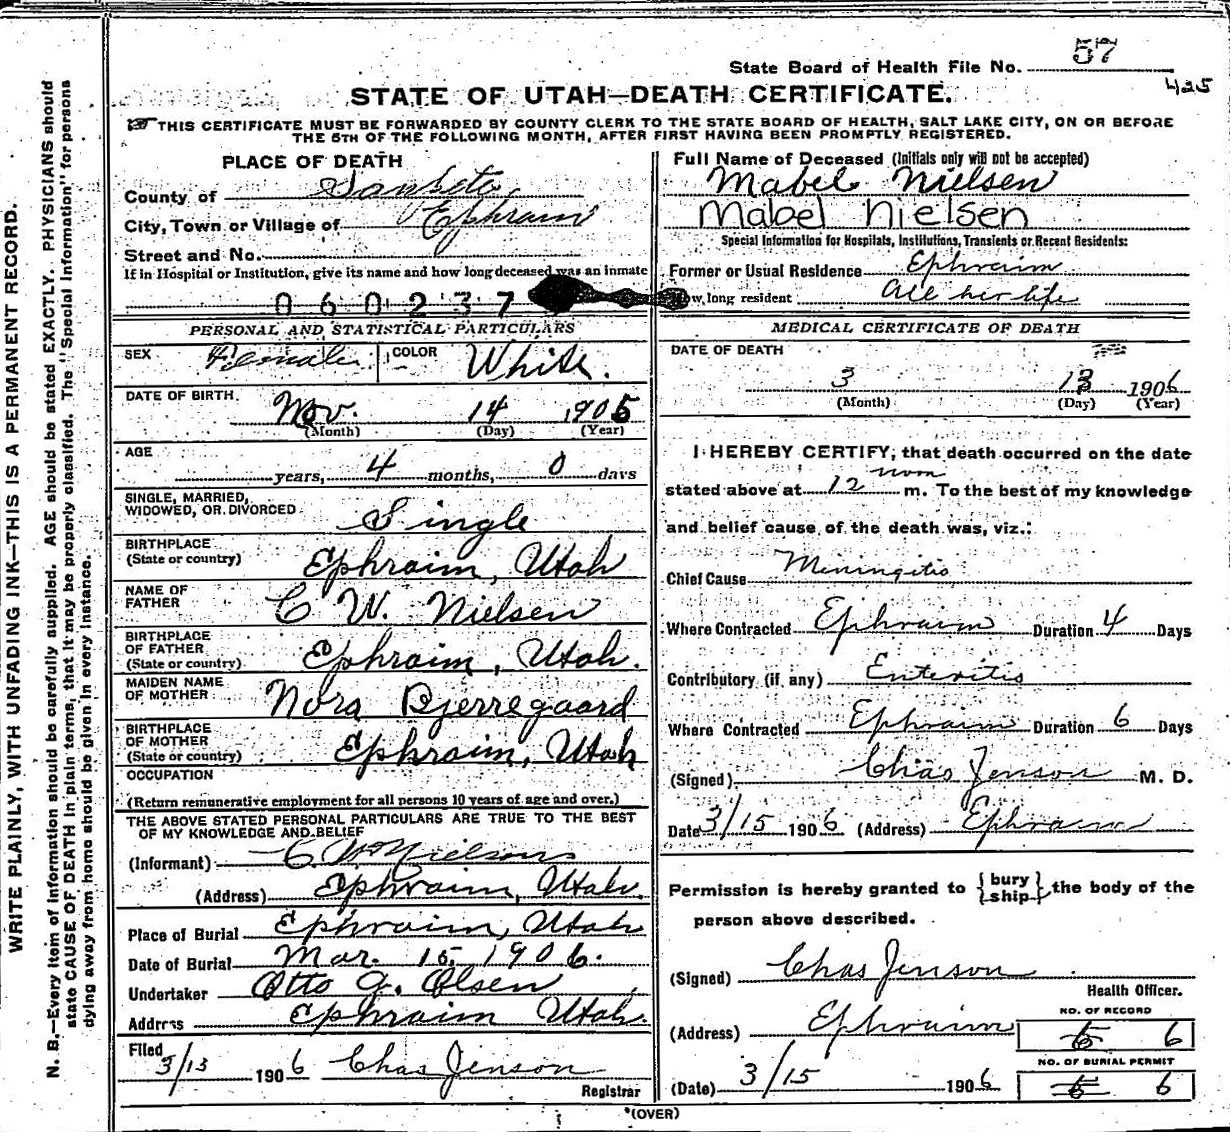 57
State Board of Health File No.
425
STATE OF UTAH—DEATH CERTIFICATE.
THIS CERTIFICATE MUST BE FORWARDED BY COUNTY CLERK TO THE STATE BOARD OF HEALTH, SALT LAKE CITY, ON OR BEFORE
THE 5TH OF THE FOLLOWING MONTH, AFTER FIRST HAVING BEEN PROMPTLY REGISTERED.
WRITE PLAINLY, WITH UNFADING INK—THIS IS A PERMANENT RECORD.
N. B.—Every item of information should be carefully supplied. AGE should be stated EXACTLY. PHYSICIANS should
state CAUSE OF DEATH in plain terms, that it may be properly classified. The "Special Information" for persons
dying away from home should be given in every instance.
PLACE OF DEATH
County of Sanpete
City, Town or Village of Ephraim
Street and No.
If in Hospital or Institution, give its name and how long deceased was an inmate
060237
PERSONAL AND STATISTICAL PARTICULARS
SEX Female COLOR White.
DATE OF BIRTH. Nov. 14 1905
(Month) (Day) (Year)
AGE
years, 4 months, 0 days
SINGLE, MARRIED,
WIDOWED, OR DIVORCED Single
BIRTHPLACE
(State or country) Ephraim, Utah
NAME OF
FATHER C W. Nielsen
BIRTHPLACE
OF FATHER
(State or country) Ephraim, Utah.
MAIDEN NAME
OF MOTHER Nora Bjerregaard
BIRTHPLACE
OF MOTHER
(State or country) Ephraim, Utah
OCCUPATION
(Return remunerative employment for all persons 10 years of age and over.)
THE ABOVE STATED PERSONAL PARTICULARS ARE TRUE TO THE BEST
OF MY KNOWLEDGE AND BELIEF
(Informant) C. W. Nielsen
(Address) Ephraim, Utah.
Place of Burial Ephraim, Utah
Date of Burial Mar. 15, 1906.
Undertaker Otto G. Olsen
Address Ephraim Utah.
Filed
3/15 1906 Chas Jenson
Registrar
Full Name of Deceased (Initials only will not be accepted)
Mabel Nielsen
Mabel Nielsen
Special Information for Hospitals, Institutions, Transients or Recent Residents:
Former or Usual Residence Ephraim
How long resident All her life
MEDICAL CERTIFICATE OF DEATH
DATE OF DEATH
3 13 1906
(Month) (Day) (Year)
I HEREBY CERTIFY, that death occurred on the date
noon
stated above at 12 m. To the best of my knowledge
and belief cause of the death was, viz.:
Chief Cause Miningitis
Where Contracted Ephraim Duration 4 Days
Contributory (if any) Enteritis
Where Contracted Ephraim Duration 6 Days
(Signed) Chas Jenson M. D.
Date 3/15 1906 (Address) Ephraim
Permission is hereby granted to {bury
ship} the body of the
person above described.
(Signed) Chas Jenson
Health Officer.
(Address) Ephraim
NO. OF RECORD
5 6
NO. OF BURIAL PERMIT
5 6
(Date) 3/15 1906
(OVER)